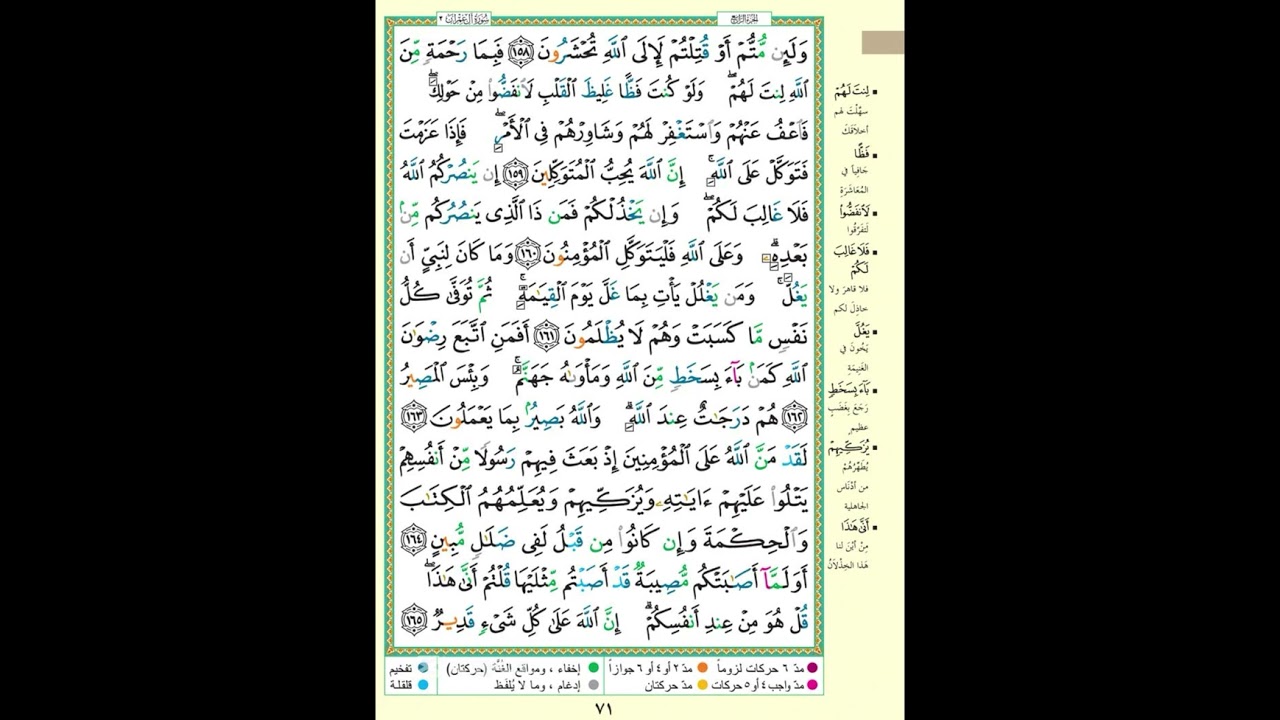 الجزء الرابع
سورة آل عمران ٣
وَلَئِن مُّتُّمْ أَوْ قُتِلْتُمْ لَإِلَى ٱللَّهِ تُحْشَرُونَ ١٥٨ فَبِمَا رَحْمَةٍ مِّنَ
ٱللَّهِ لِنتَ لَهُمْ ۖ وَلَوْ كُنتَ فَظًّا غَلِيظَ ٱلْقَلْبِ لَٱنفَضُّوا۟ مِنْ حَوْلِكَ ۖ
فَٱعْفُ عَنْهُمْ وَٱسْتَغْفِرْ لَهُمْ وَشَاوِرْهُمْ فِى ٱلْأَمْرِ ۖ فَإِذَا عَزَمْتَ
فَتَوَكَّلْ عَلَى ٱللَّهِ ۚ إِنَّ ٱللَّهَ يُحِبُّ ٱلْمُتَوَكِّلِينَ ١٥٩ إِن يَنصُرْكُمُ ٱللَّهُ
فَلَا غَالِبَ لَكُمْ ۖ وَإِن يَخْذُلْكُمْ فَمَن ذَا ٱلَّذِى يَنصُرُكُم مِّنۢ
بَعْدِهِۦ ۗ وَعَلَى ٱللَّهِ فَلْيَتَوَكَّلِ ٱلْمُؤْمِنُونَ ١٦٠ وَمَا كَانَ لِنَبِىٍّ أَن
يَغُلَّ ۚ وَمَن يَغْلُلْ يَأْتِ بِمَا غَلَّ يَوْمَ ٱلْقِيَٰمَةِ ۚ ثُمَّ تُوَفَّىٰ كُلُّ
نَفْسٍ مَّا كَسَبَتْ وَهُمْ لَا يُظْلَمُونَ ١٦١ أَفَمَنِ ٱتَّبَعَ رِضْوَٰنَ
ٱللَّهِ كَمَنۢ بَآءَ بِسَخَطٍ مِّنَ ٱللَّهِ وَمَأْوَىٰهُ جَهَنَّمُ ۚ وَبِئْسَ ٱلْمَصِيرُ
١٦٢ هُمْ دَرَجَٰتٌ عِندَ ٱللَّهِ ۗ وَٱللَّهُ بَصِيرٌۢ بِمَا يَعْمَلُونَ ١٦٣
لَقَدْ مَنَّ ٱللَّهُ عَلَى ٱلْمُؤْمِنِينَ إِذْ بَعَثَ فِيهِمْ رَسُولًا مِّنْ أَنفُسِهِمْ
يَتْلُوا۟ عَلَيْهِمْ ءَايَٰتِهِۦ وَيُزَكِّيهِمْ وَيُعَلِّمُهُمُ ٱلْكِتَٰبَ
وَٱلْحِكْمَةَ وَإِن كَانُوا۟ مِن قَبْلُ لَفِى ضَلَٰلٍ مُّبِينٍ ١٦٤
أَوَلَمَّآ أَصَٰبَتْكُم مُّصِيبَةٌ قَدْ أَصَبْتُم مِّثْلَيْهَا قُلْتُمْ أَنَّىٰ هَٰذَا ۖ
قُلْ هُوَ مِنْ عِندِ أَنفُسِكُمْ ۗ إِنَّ ٱللَّهَ عَلَىٰ كُلِّ شَىْءٍ قَدِيرٌ ١٦٥
لِنتَ لَهُمْ
سهّلتَ لهم
أخلاقَكَ
فَظًّا
جَافِياً في
المُعَاشَرَة
لَٱنفَضُّوا۟
لَتفَرَّقُوا
فَلَا غَالِبَ
لَكُمْ
فلا قاهرَ ولا
خاذِلَ لكم
يَغُلَّ
يَخُونَ في
الغَنِيمَةِ
بَآءَ بِسَخَطٍ
رَجَعَ بِغَضَبٍ
عظيم
يُزَكِّيهِمْ
يُطَهِّرُهُمْ
من أدْنَاسِ
الجاهلية
أَنَّىٰ هَٰذَا
مِنْ أَيْنَ لنا
هَذا الخِذْلَانُ
مدّ ٦ حركات لزوماً
مدّ ٢ أو ٤ أو ٦ جوازاً
إخفاء ، ومواقع الغُنَّة (حركتان)
تفخيم
مدّ واجب ٤ أو ٥ حركات
مدّ حركتان
إدغام ، وما لا يُلفَظ
قلقلة
٧١